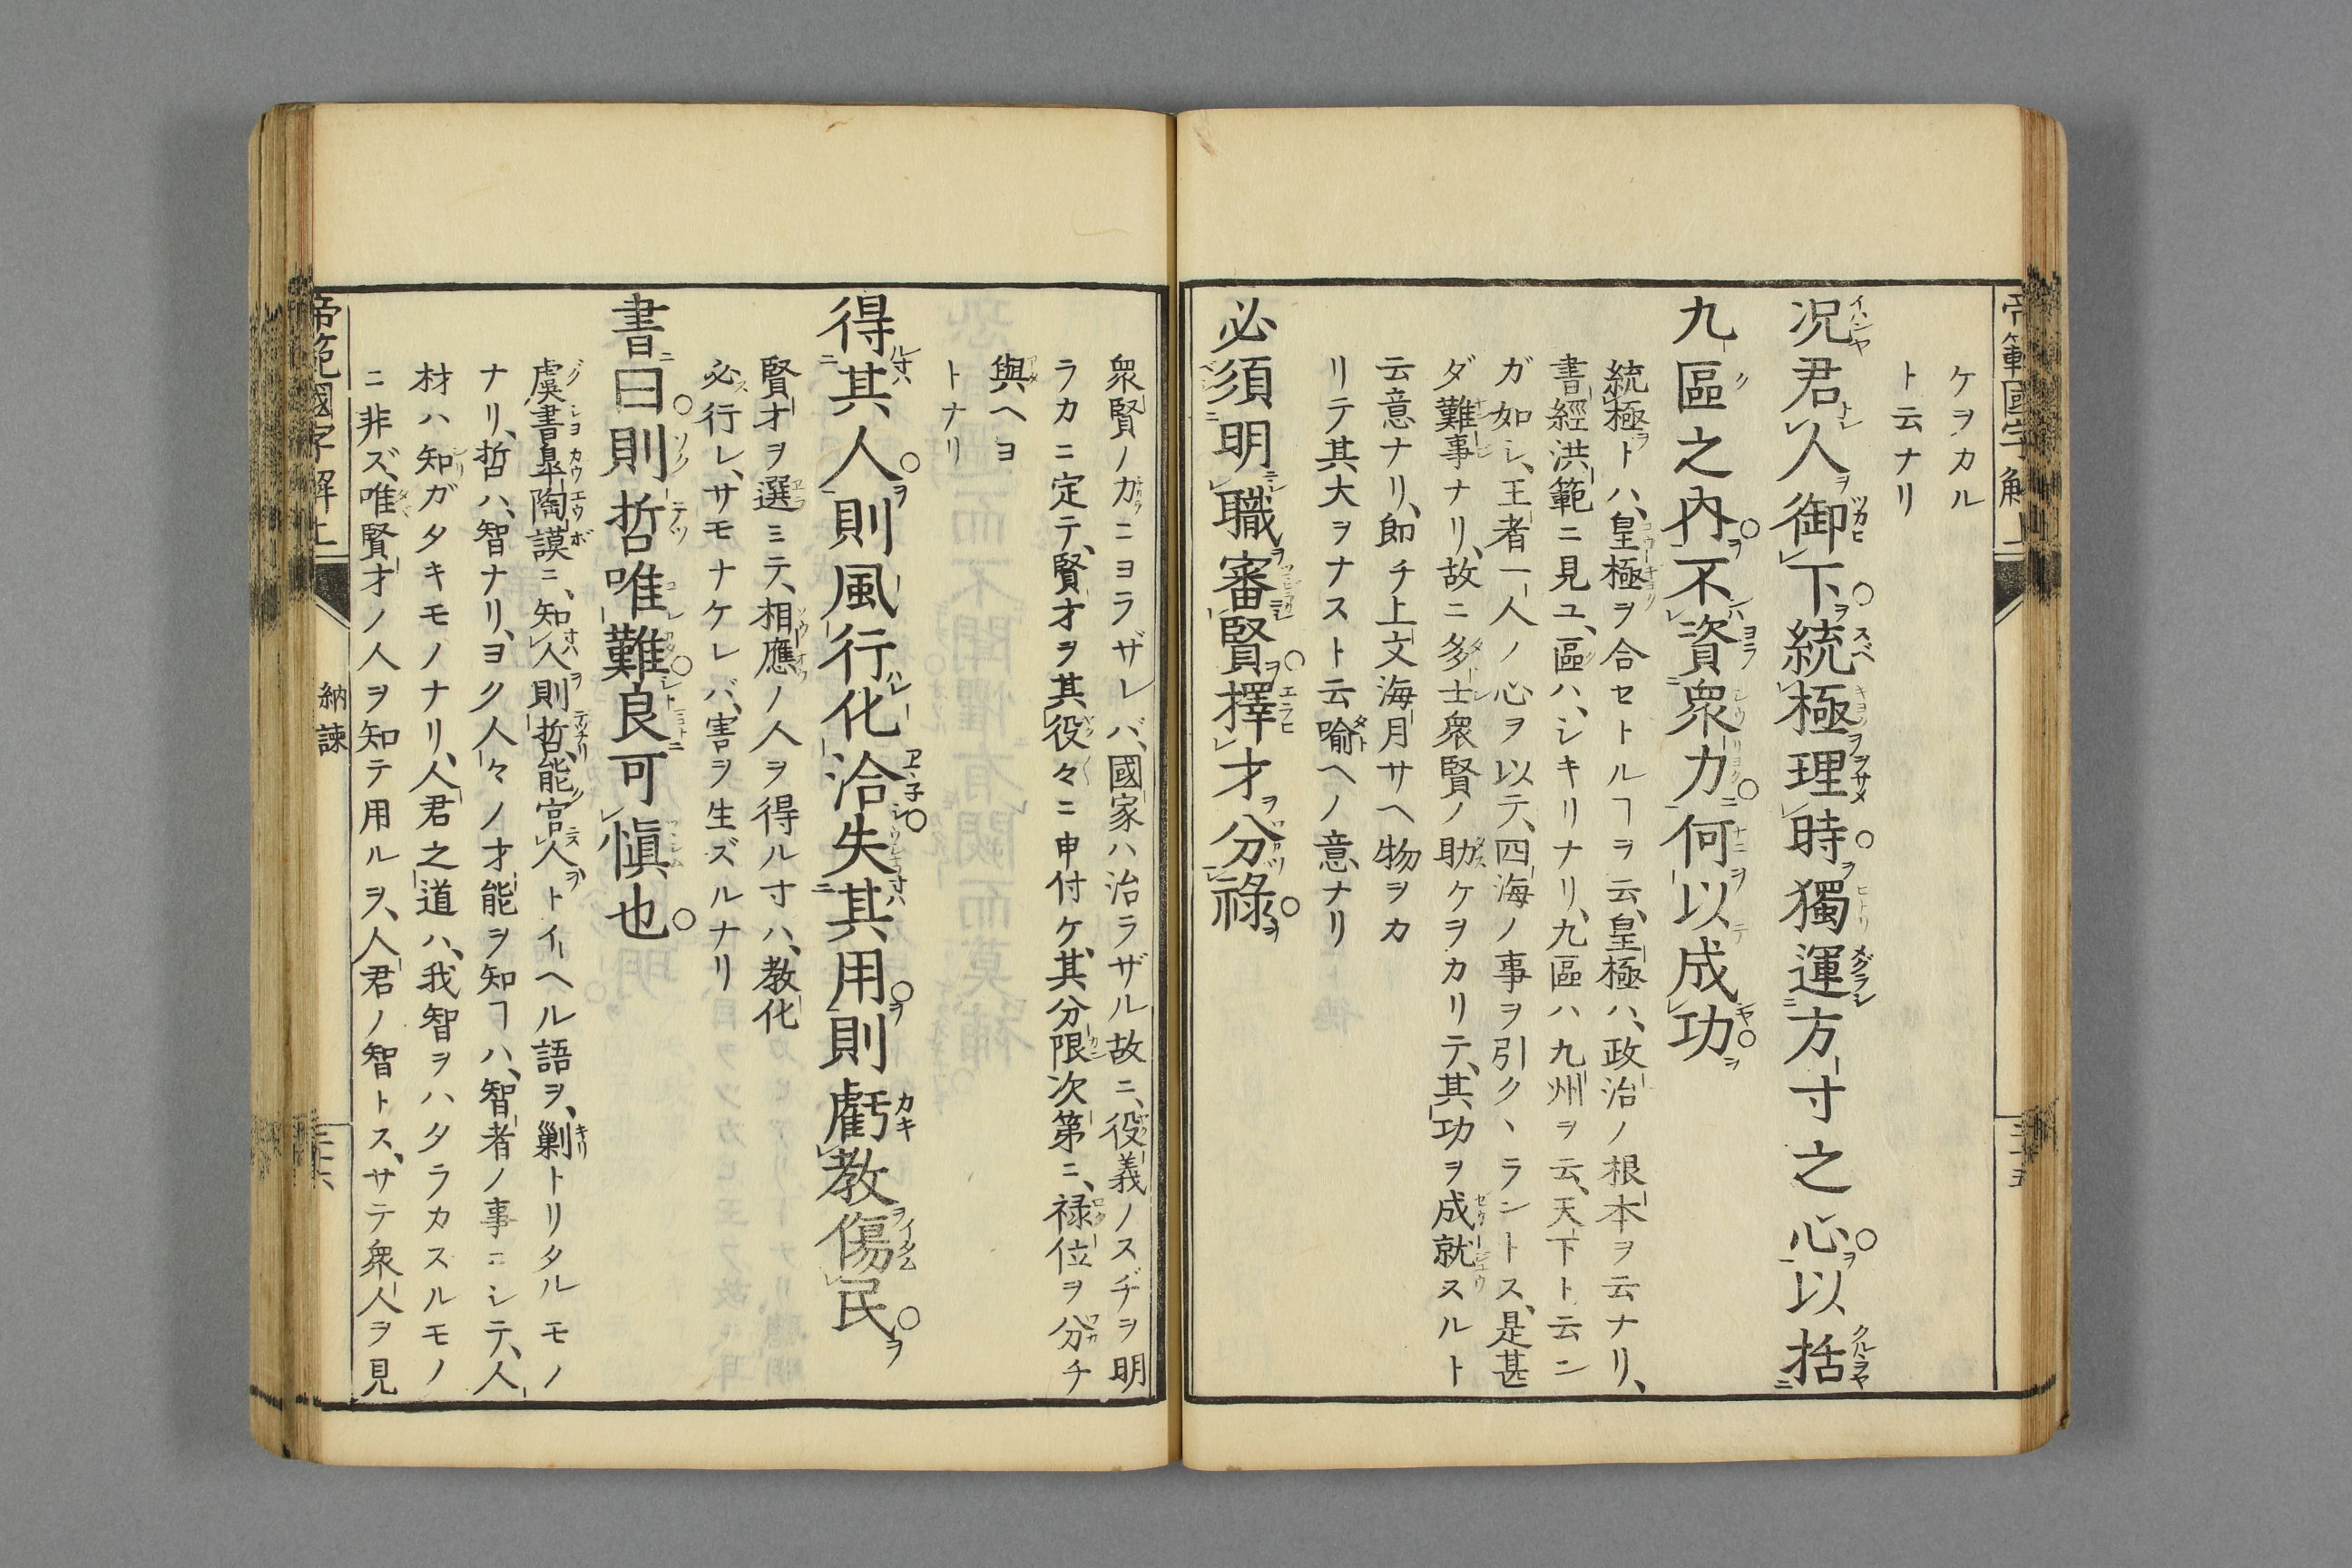 帝範國字解上
ケヲカル
ト云ナリ
况君人御下統極理時獨運方寸之心以括
九區之內不資衆力何以成功
統極トハ、皇極ヲ合セトルヿヲ云、皇極ハ、政治ノ根本ヲ云ナリ、
書經洪範ニ見ユ、區ハ、シキリナリ、九區ハ九州ヲ云、天下ト云ン
ガ如シ、王者一人ノ心ヲ以テ、四海ノ事ヲ引ク、ラントス、是甚
ダ難事ナリ、故ニ多士衆賢ノ助ケヲカリテ、其功ヲ成就スルト
云意ナリ、即チ上文海月サヘ物ヲカ
リテ其大ヲナスト云喩ヘノ意ナリ
必須明職審賢擇才分祿
衆賢ノ力ニヨラザレバ、國家ハ治ラザル故ニ、役義ノスヂヲ明
ラカニ定テ、賢才ヲ其役々ニ申付ケ、其分限次第ニ、禄位ヲ分チ
與ヘヨ
トナリ
得其人則風行化洽失其用則虧教傷民
賢才ヲ選ミテ、相應ノ人ヲ得ル寸ハ、教化
必行レ、サモナケレバ、害ヲ生ズルナリ
書曰則哲唯難良可愼也
虞書皐陶謨ニ、知人則哲、能官人トイヘル語ヲ、剿トリタルモノ
ナリ、哲ハ、智ナリ、ヨク人々ノ才能ヲ知ヿハ、智者ノ事ニシテ、人
材ハ知ガタキモノナリ、人君之道ハ、我智ヲハタラカスルモノ
ニ非ズ、唯賢才ノ人ヲ知テ用ルヲ、人君ノ智トス、サテ衆人ヲ見
帝範國字解上
納諫